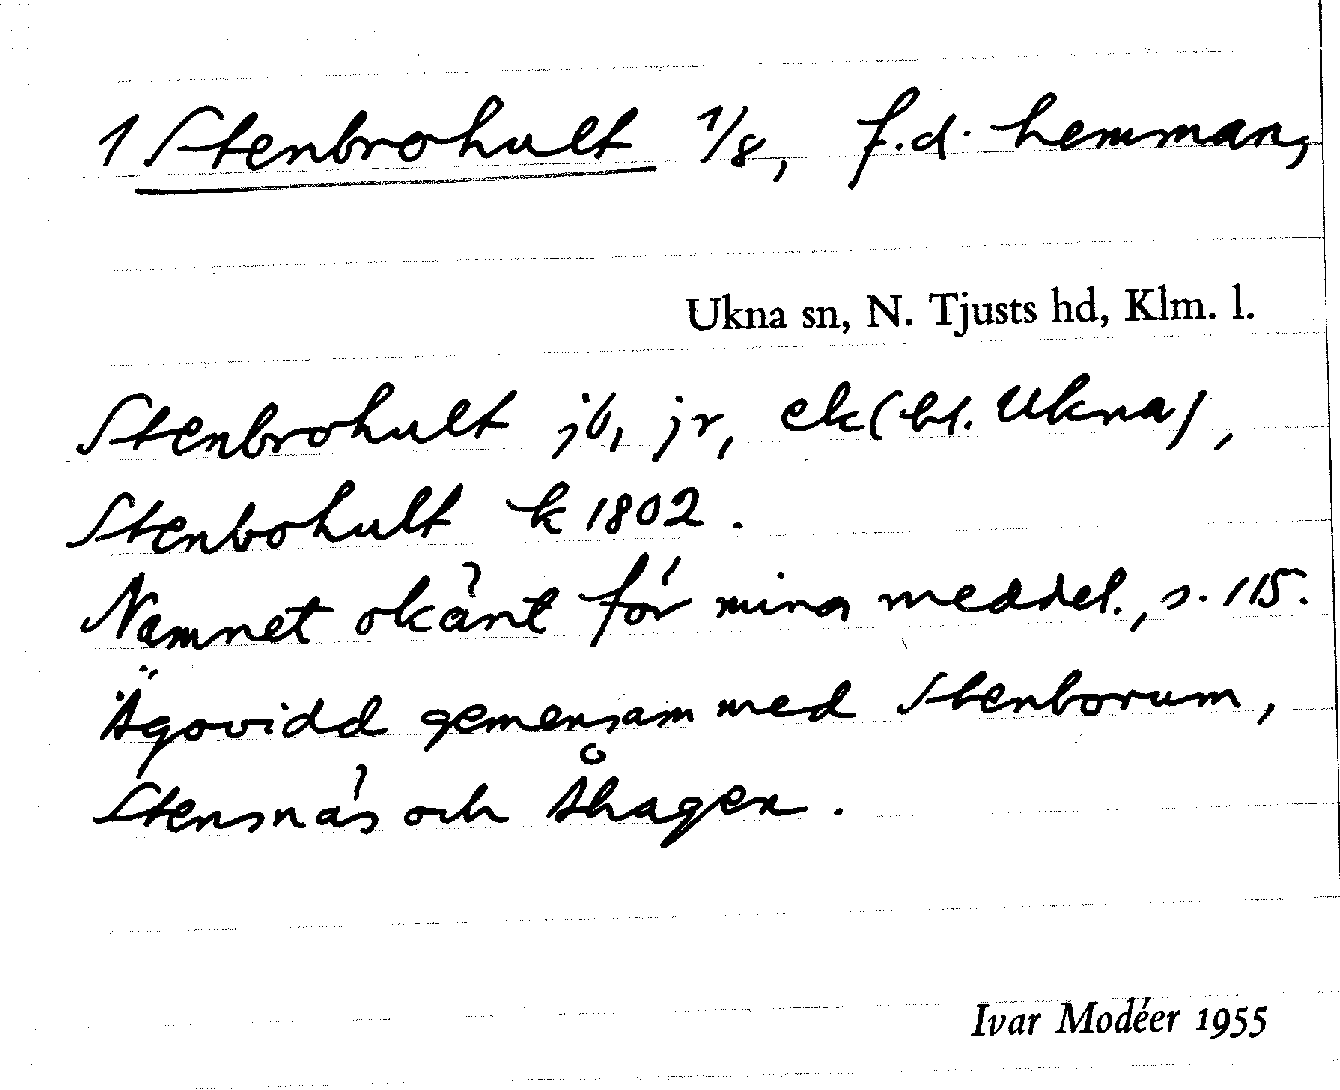 1 Stenbrohult 1/8, f.d. hemman,
Ukna sn, N. Tjusts hd, Klm. l.
Stenbrohult jb, jr, ek (bl. Ukna),
Stenbohult k 1802.
Namnet okänt för mina meddel., s. 115.
Ägovidd gemensam med Stenborum,
Stensnäs och Åhagen.
Ivar Modéer 1955